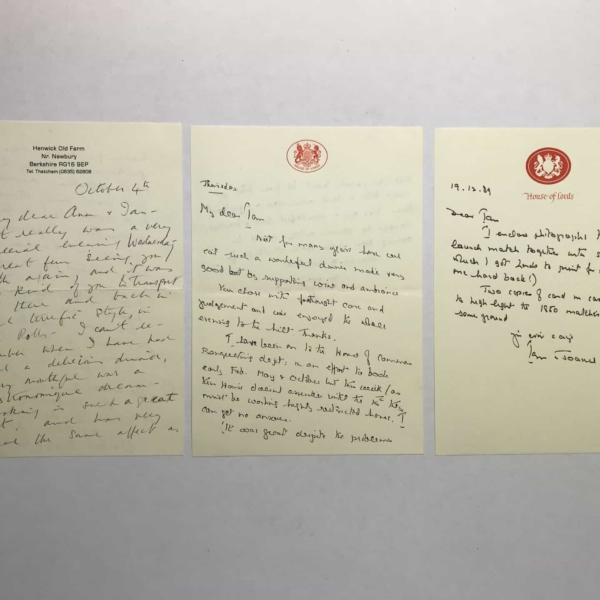 Henwick Old Farm
Nr. Newbury
Berkshire RG16 9EP
Tel. Thatcham (0635) 60808
October 4th
my dear Ann & Ian -
It really was a very
special evening Wednesday
great fun seeing you
both again, and it was
kind of you to transport
there and back in
terrific style, in
Rolls - I can't re-
member when I have had
a delicious dinner,
mouthful was a
gastronomique dream -
in such a great
and has very
the same affect as
HOUSE OF LORDS
Thursday
My dear Ian
Not for many years have we
eat such a wonderful dinner made very
good by supporting wine and ambiance
You chose with forethought care and
judgement and we enjoyed the whole
evening to the hilt Thanks.
I have been on to the House of Commons
Banqueting dept. in an effort to book
early Feb. May & October but this week / as
the Houses doesnt assemble until the 10th they
must be working highly restricted hours. I
can get no answer.
'It was great' despite the problems
House of Lords
19.12.89
Dear Ian
I enclose photographs
launch match together with
which I got Lords to print for
me hard back!)
Two copies of card in case
to high light the 1850 matches
same ground
Ian